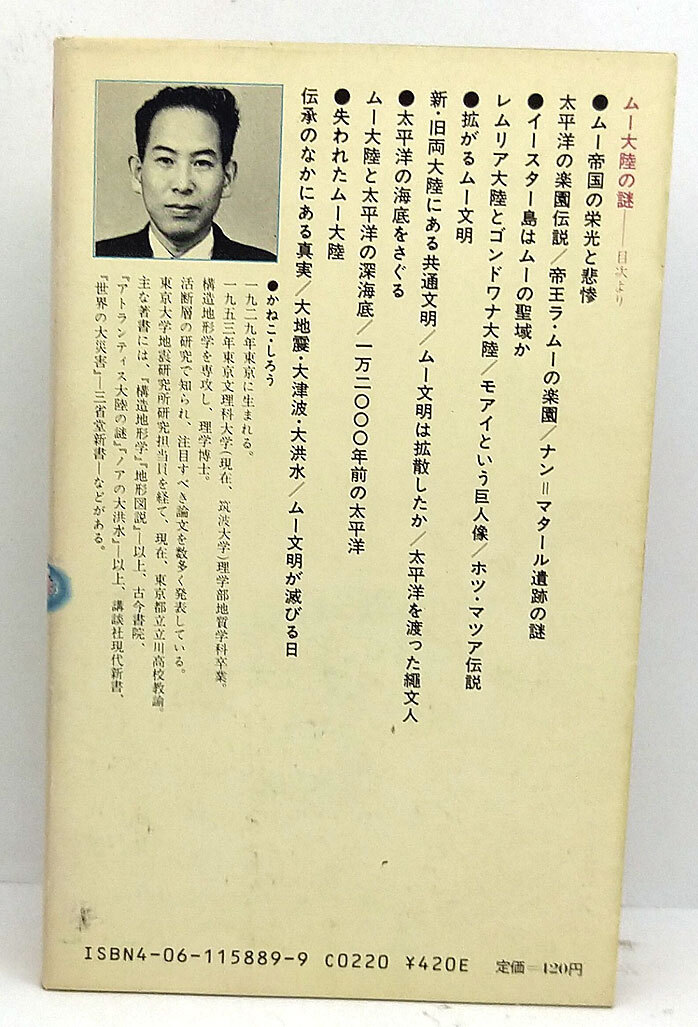 ムー大陸の謎——目次より
●ムー帝国の栄光と悲惨
太平洋の楽園伝説／帝王ラ・ムーの楽園／ナン＝マタール遺跡の謎
●イースター島はムーの聖域か
レムリア大陸とゴンドワナ大陸／モアイという巨人像／ホツ・マツア伝説
●拡がるムー文明
新・旧両大陸にある共通文明／ムー文明は拡散したか／太平洋を渡った縄文人
●太平洋の海底をさぐる
ムー大陸と太平洋の深海底／一万二〇〇〇年前の太平洋
●失われたムー大陸
伝承のなかにある真実／大地震・大津波・大洪水／ムー文明が滅びる日
●かねこ・しろう
一九二九年東京に生まれる。
一九五三年東京文理科大学（現在、筑波大学）理学部地質学科卒業。
構造地形学を専攻し、理学博士。
活断層の研究で知られ、注目すべき論文を数多く発表している。
東京大学地震研究所研究担当員を経て、現在、東京都立立川高校教諭。
主な著書には、『構造地形学』『地形図説』—以上、古今書院、
『アトランティス大陸の謎』『ノアの大洪水』—以上、講談社現代新書、
『世界の大災害』—三省堂新書—などがある。
ISBN4-06-115889-9 C0220 ¥420E 定価＝420円